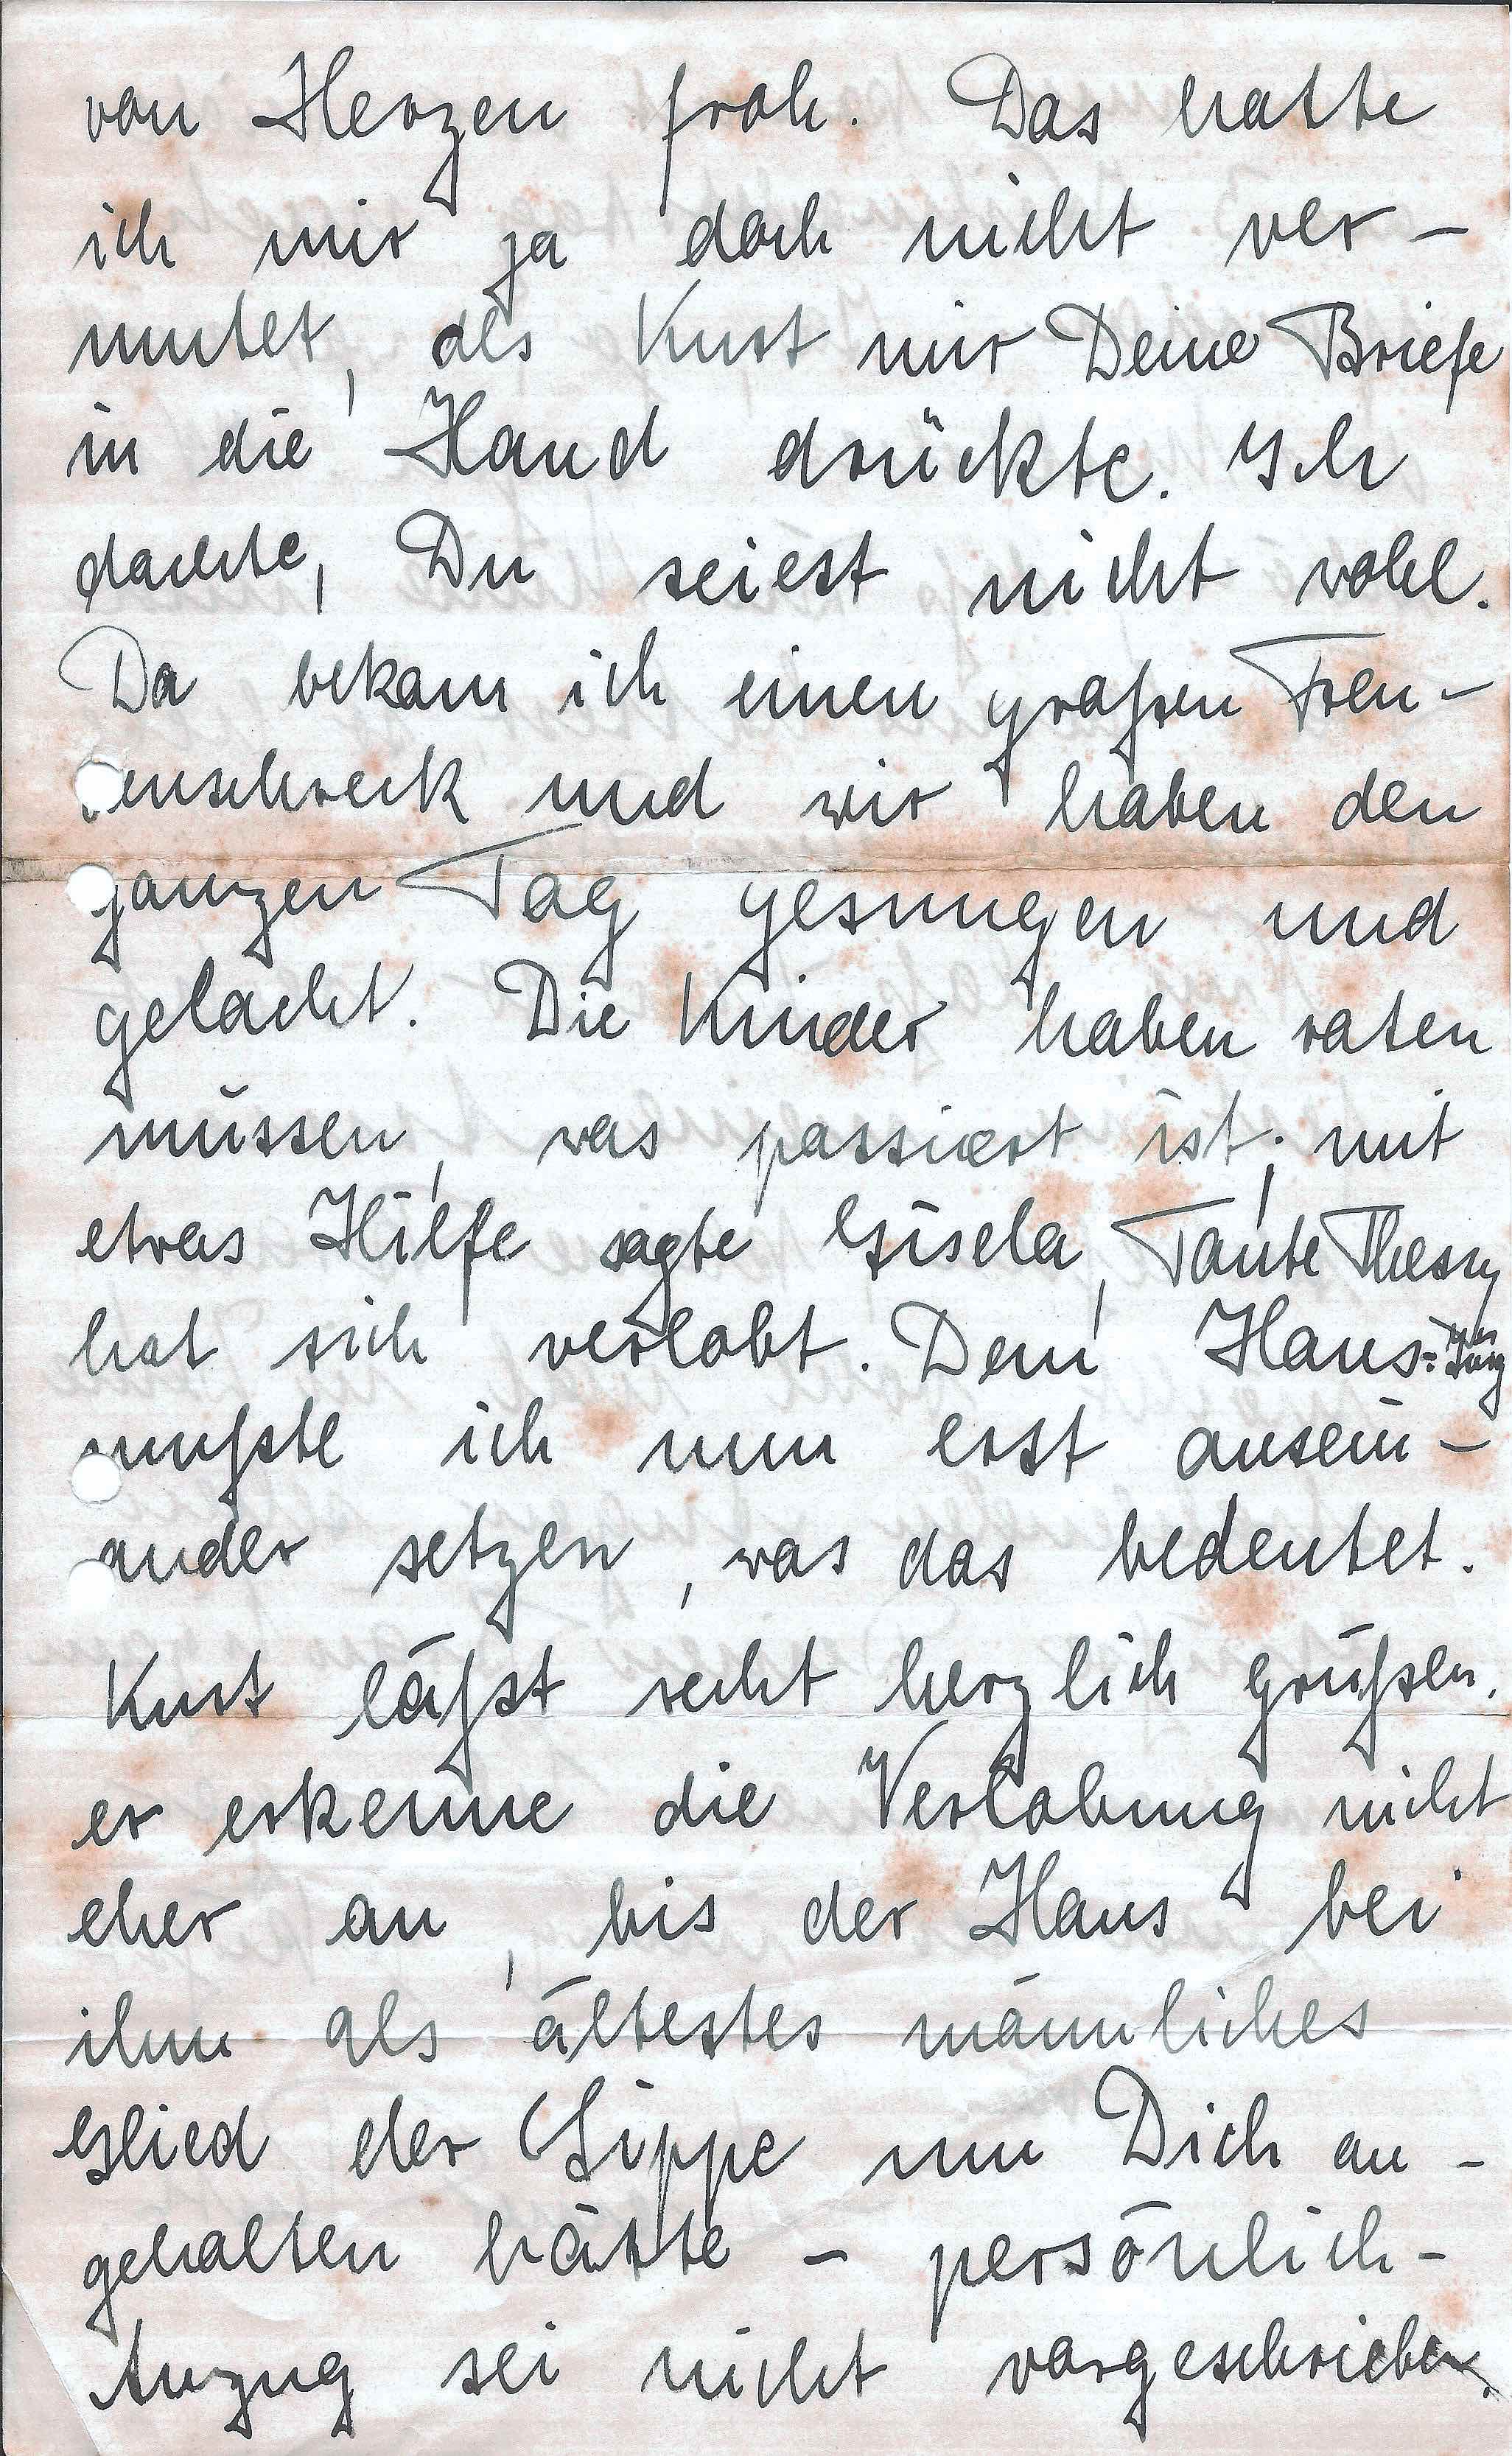 von Herzen froh. Das hatte
ich mir ja doch nicht ver-
mutet, als Kurt mir Deine Briefe
in die Hand drückte. Ich
dachte, Du seiest nicht wohl.
Da bekam ich einen großen Freu-
enschreck und wir haben den
ganzen Tag gesungen und
gelacht. Die Kinder haben raten
müssen, was passiert ist; mit
etwas Hilfe sagte Gisela, Tante Thessy
hat sich verlobt. Dem Hans-Jürg
mußte ich nun erst ausein-
ander setzen, was das bedeutet.
Kurt läßt recht herzlich grüßen,
er erkenne die Verlobung nicht
eher an, bis der Hans bei
ihm als ältestes männliches
Glied der Sippe um Dich an-
gehalten hätte - persönlich -
Anzug sei nicht vorgeschrieben.